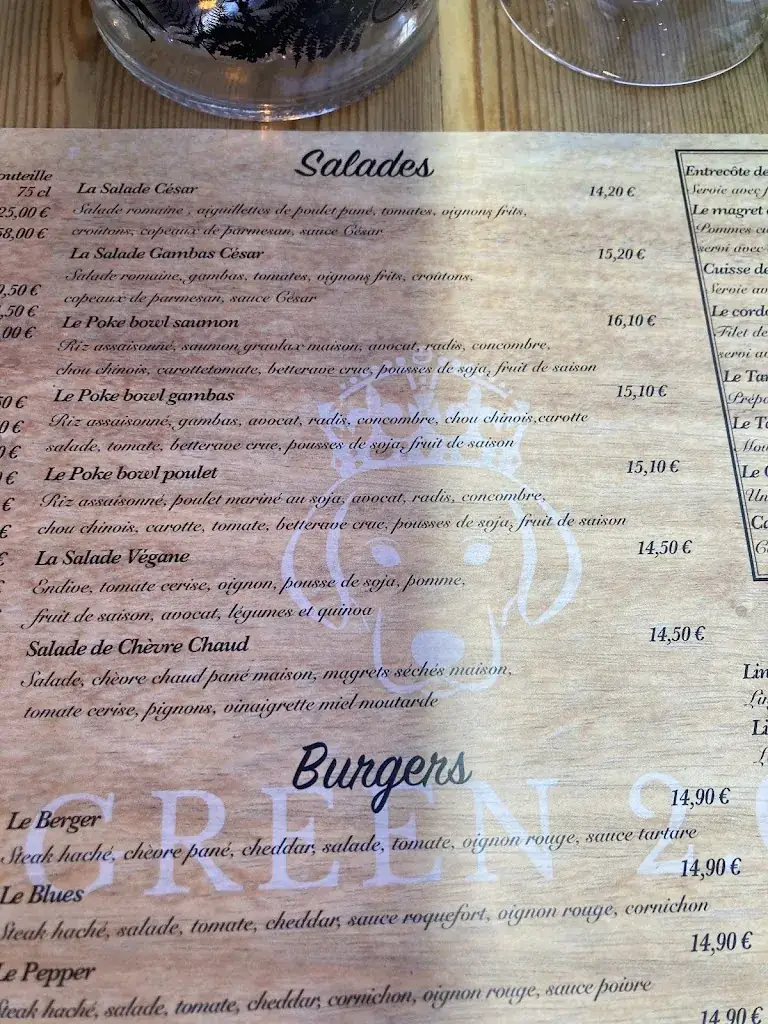 Salades
outeille
75 cl
25,00 €
58,00 €
,50 €
,50 €
,00 €
La Salade César 14,20 €
Salade romaine , aiguillettes de poulet pané, tomates, oignons frits,
croûtons, copeaux de parmesan, sauce César
La Salade Gambas César 15,20 €
Salade romaine, gambas, tomates, oignons frits, croûtons,
copeaux de parmesan, sauce César
Le Poke bowl saumon 16,10 €
Riz assaisonné, saumon gravlax maison, avocat, radis, concombre,
chou chinois, carottetomate, betterave crue, pousses de soja, fruit de saison
Le Poke bowl gambas 15,10 €
Riz assaisonné, gambas, avocat, radis, concombre, chou chinois,carotte
salade, tomate, betterave crue, pousses de soja, fruit de saison
Le Poke bowl poulet 15,10 €
Riz assaisonné, poulet mariné au soja, avocat, radis, concombre,
chou chinois, carotte, tomate, betterave crue, pousses de soja, fruit de saison
La Salade Végane 14,50 €
Endive, tomate cerise, oignon, pousse de soja, pomme,
fruit de saison, avocat, légumes et quinoa
Salade de Chèvre Chaud 14,50 €
Salade, chèvre chaud pané maison, magrets séchés maison,
tomate cerise, pignons, vinaigrette miel moutarde
Burgers
GREEN 2
Le Berger 14,90 €
Steak haché, chèvre pané, cheddar, salade, tomate, oignon rouge, sauce tartare
Le Blues 14,90 €
Steak haché, salade, tomate, cheddar, sauce roquefort, oignon rouge, cornichon
Le Pepper 14,90 €
Steak haché, salade, tomate, cheddar, cornichon, oignon rouge, sauce poivre
14,90 €
Entrecôte de
Servie avec
Le magret
Pommes
servi avec
Cuisse de
Servie
Le cordo
Filet de
servi
Le Tar
Prépa
Le Ta
Le
Un